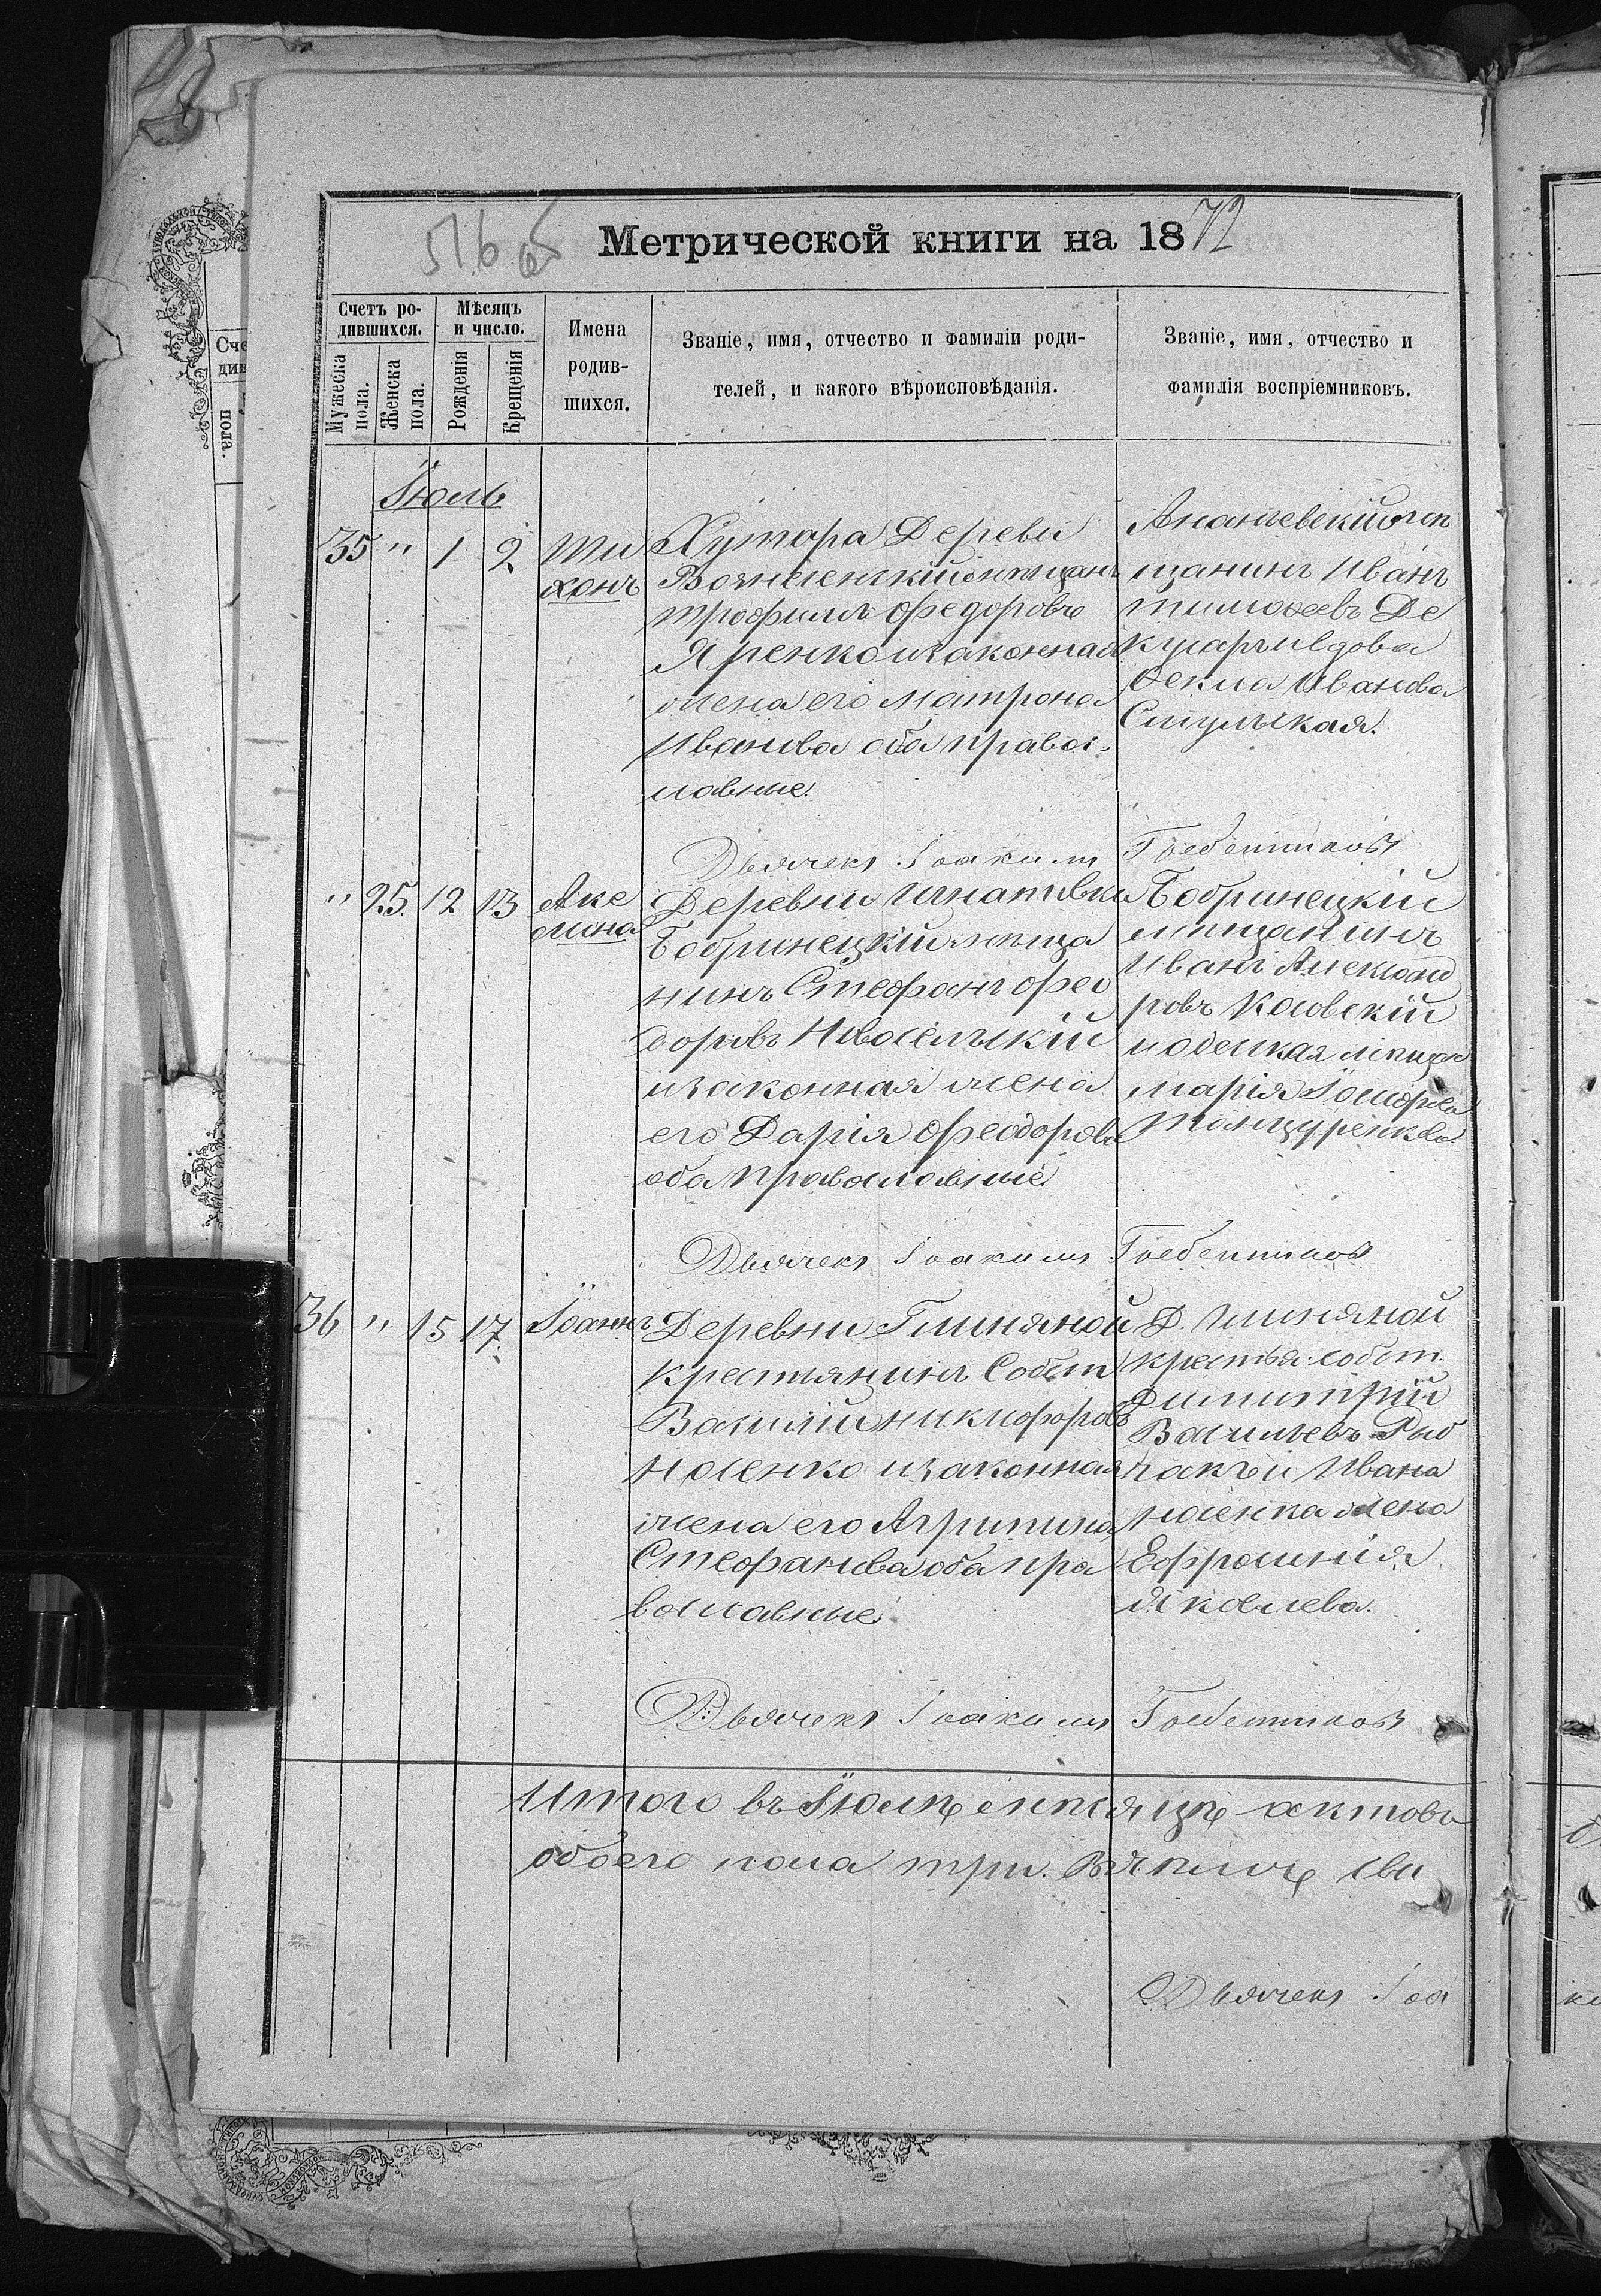 516 об
Метрической книги на 1872
Счетъ ро-
дившихся.
Мѣсяцъ
и число.
Мужеска
пола.
Женска
пола.
Рожденія
Крещенія
Имена
родив-
шихся.
Званіе, имя, отчество и фамиліи роди-
телей, и какого вѣроисповѣданія.
Званіе, имя, отчество и
фамилія воспріемниковъ.
Іюль
35 " 1 2
Ти
хонъ
Хутора Дереви
Вознесенскій мѣщан
Трофимъ Федоровъ
Яренко и законная
жена его Матрона
Иванова оба правос
лавные.
Ананьевскій мѣ
щанинъ Иванъ
Тимофеевъ Де
и вдова
Ѳекла Иванова
Дьячекъ Іоакимъ Гребенниковъ
" 25. 12 13
Аке
лина
Деревни Игнатівки
Бобринецкій мѣща
нинъ Стефанъ Фео
доровъ Новосельскій
и законная жена
его Дарія Феодорова
оба православные.
Бобринецкій
мѣщанинъ
Иванъ Александ
ровъ
и одеская мѣщан
Марія
Дьячекъ Іоакимъ Гребенниковъ
36 " 15 17.
Іоаннъ
Деревни Глиняной
крестьянинъ Собст
Василій Никифоровъ
Носенко и законная
жена его Агрипина
Стефанова оба пра
вославные.
Д. Глиняной
крестья: собст.
Димитрій
Васильевъ Рыб
чакъ и Ивана
Носенка жена
Ефросинія
Яковлева.
Дьячекъ Іоакимъ Гребенниковъ
Итого въ Іюлѣ мѣсяцѣ актовъ
обоего пола три.
Дьячекъ Іоа